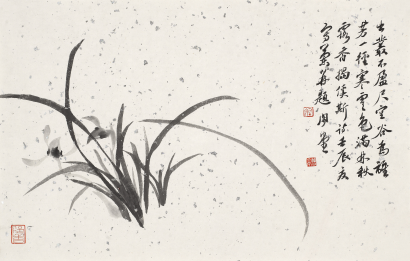 幽叢不盈尺空谷為誰
芳一徑寒雲色滿林秋
露香揭傒斯詩壬辰夏
寫蕙并題